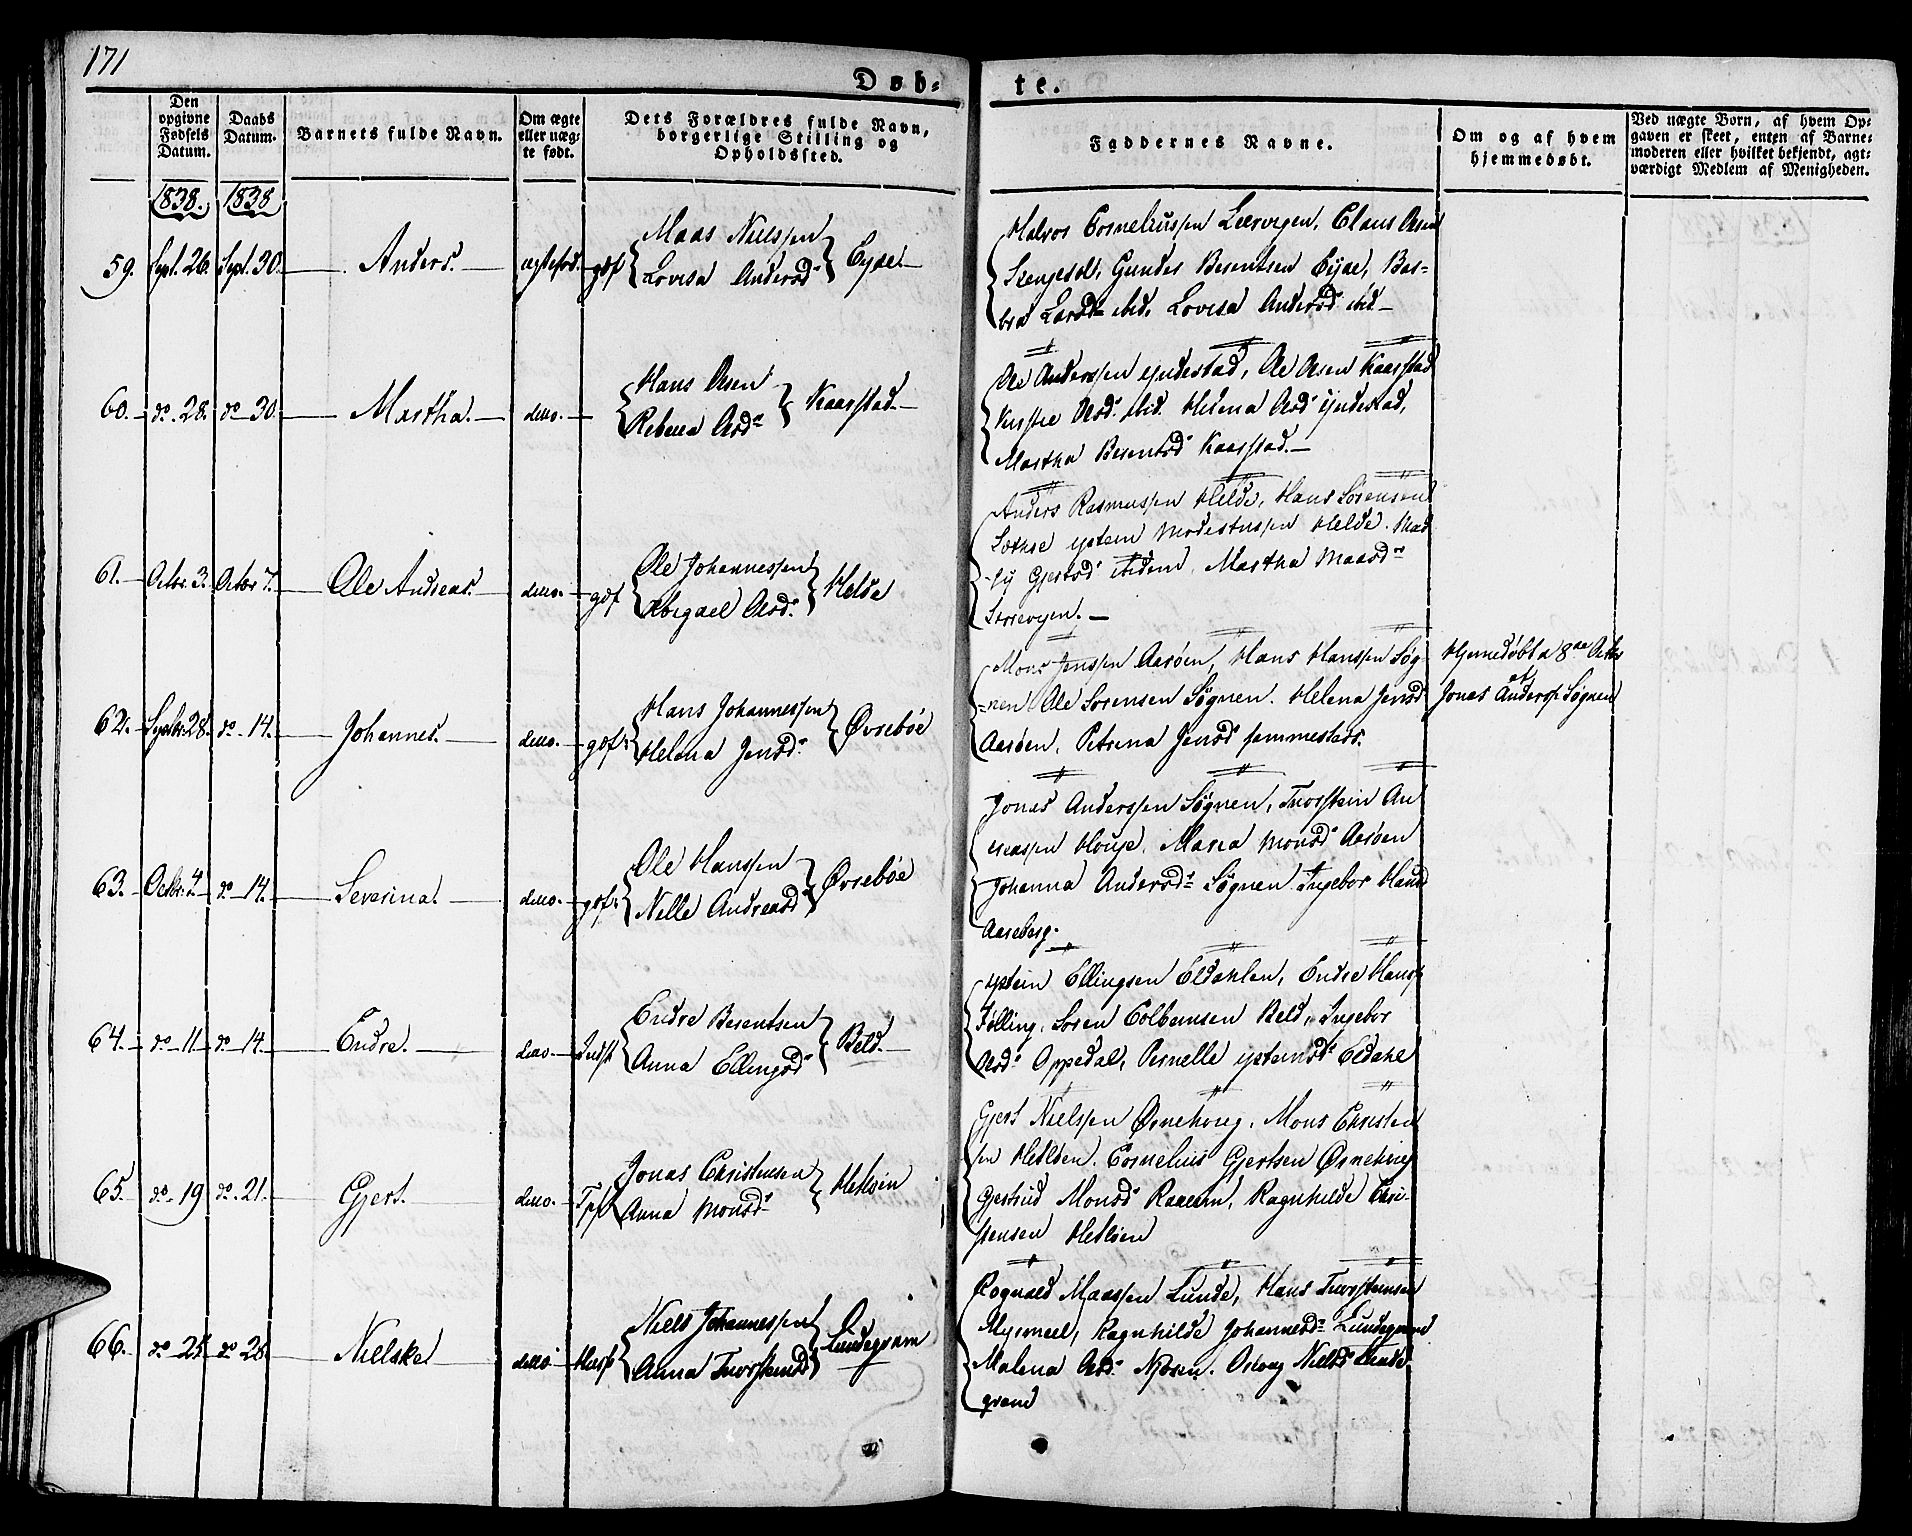 171
Døb-
te.
Den opgivne Fødsels Datum.
Daabs Datum.
Barnets fulde Navn.
Om ægte eller uæg- te født.
Dets Forældres fulde Navn, borgerlige Stilling og Opholdssted.
Faddernes Navne.
Om og af hvem hjemmedøbt.
Ved uægte Børn, af hvem Op- gaven er skeet, enten af Barne- moderen eller hvilket bekjendt, agt- værdigt Medlem af Menigheden.
1838. 1838
59. Sept. 26. Sept. 30. Anders. ægtefød. gdf
Maas Nielssen
Lovisa Andersd Eyde.
Halvor Corneliussen Leervigen, Claus Olsen
Stengesol, Gunder Berentsen Eyde, Bar-
bra Larsd ibid, Lovisa Andersd ibid
60. do. 28. do 30. Martha. ditto.
Hans Olsen
Rebecca Olsd Kaarstad.
Ole Anderssen Yndestad, Ole Olsen Kaarstad
Kirstie Olsd. ibid. Helena Olsd Yndestad,
Martha Berentsd Kaarstad.
61. Octbr. 3. Octbr 7. Ole Andreas. ditto. gdf
Ole Johannessen
Abigael Olsd. Helde
Anders Rasmussen Helde, Hans Sørensen
Lothse ystein Modestussen Helde. Mad
Gjertsd ibidem, Martha Maasd
62. Septbr. 28. do 14. Johannes. ditto. gdf
Hans Johannessen
Helena Jensd. Øvrebøe
Mons Jenssen Aarøen, Hans Hanssen Søg-
nen Ole Sørensen Søgnen. Helena Jensd
Aarøen, Petrina Jensd sammesteds.
Hjemedøbt d 8de Octbr
af
Jonas Anderss. Søgnen
63. Octbr. 4 do 14. Severina. ditto. gdf
Ole Hanssen
Nille Andreasd Øvrebøe
Jonas Anderssen Søgnen, Thorstein An
dreassen Houge, Maria Monsd Aarøen
Johanna Andersd Søgnen Ingebor Hansd
Aareberg.
64. do 11 do 14. Endre. ditto Indst
Endre Berentsen
Anna Ellingsd Beld.
ystein Ellingsen Eldahlen, Endre Hans
Følling, Søren Colbensen Beld, Ingebor
Olsd. Oppedal, Pernelle ysteinsd Eldahl
65. do. 19 do. 21. Gjert. ditto. Tpf
Jonas Christensen
Anna Monsd Hetleen
Gjert Nielssen Ørnehoug, Mons Christen
sen Hetleen. Cornelius Gjertsen Ørnehoug
Gjertrud Monsd, Ragnhilde Chri-
stensen Hetleen
66. do 25. do 28. Nielske ditto Husf
Niels Johannessen
Anna Thorsteinsd Lundegram
Rognald Maassen Lunde, Hans Thorsteinsen
Myrmeel, Ragnhilde Johannesd Lundegrand
Malena Olsd. Njøsen. Nielsd Lunde
grand